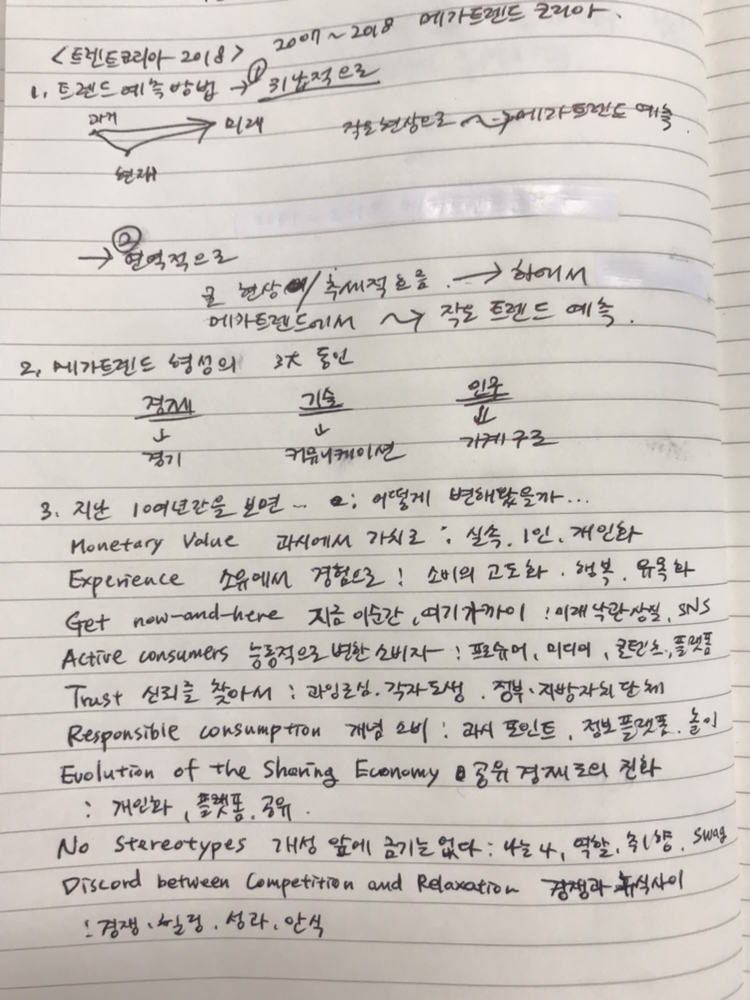 2007~2018 메가트렌드 코리아.
<트렌트코리아 2018>
1. 트렌드 예측방법 → ① 귀납적으로
과거 미래
현재
작은현상으로 메가트렌드 예측.
→ ② 연역적으로
큰 현상 / 추세적흐름 → 하에서
메가트렌드에서 작은 트렌드 예측.
2. 메가트렌드 형성의 3大 동인
경제 기술 인구
↓ ↓ ⇓
경기 커뮤니케이션 가계구조
3. 지난 10여년간을 보면… 어떻게 변해왔을까…
Monetary Value 과시에서 가치로 : 실속, 1인, 개인화
Experience 소유에서 경험으로 : 소비의 고도화. 행복. 유목화
Get now-and-here 지금이순간, 여기가까이 : 미래낙관상실, SNS
Active consumers 능동적으로 변한 소비자 : 프로슈머, 미디어, 콘텐츠, 플랫폼
Trust 신뢰를 찾아서 : 과잉근심. 각자도생. 정부·지방자치단체
Responsible consumption 개념소비 : 과시 포인트, 정보플랫폼. 놀이
Evolution of the Sharing Economy 공유경제로의 진화
: 개인화, 플랫폼. 공유.
No Stereotypes 개성 앞에 금기는 없다 : 나는 나, 역할, 취향. swag
Discord between Competition and Relaxation 경쟁과 휴식사이
: 경쟁. 힐링. 성과. 안식